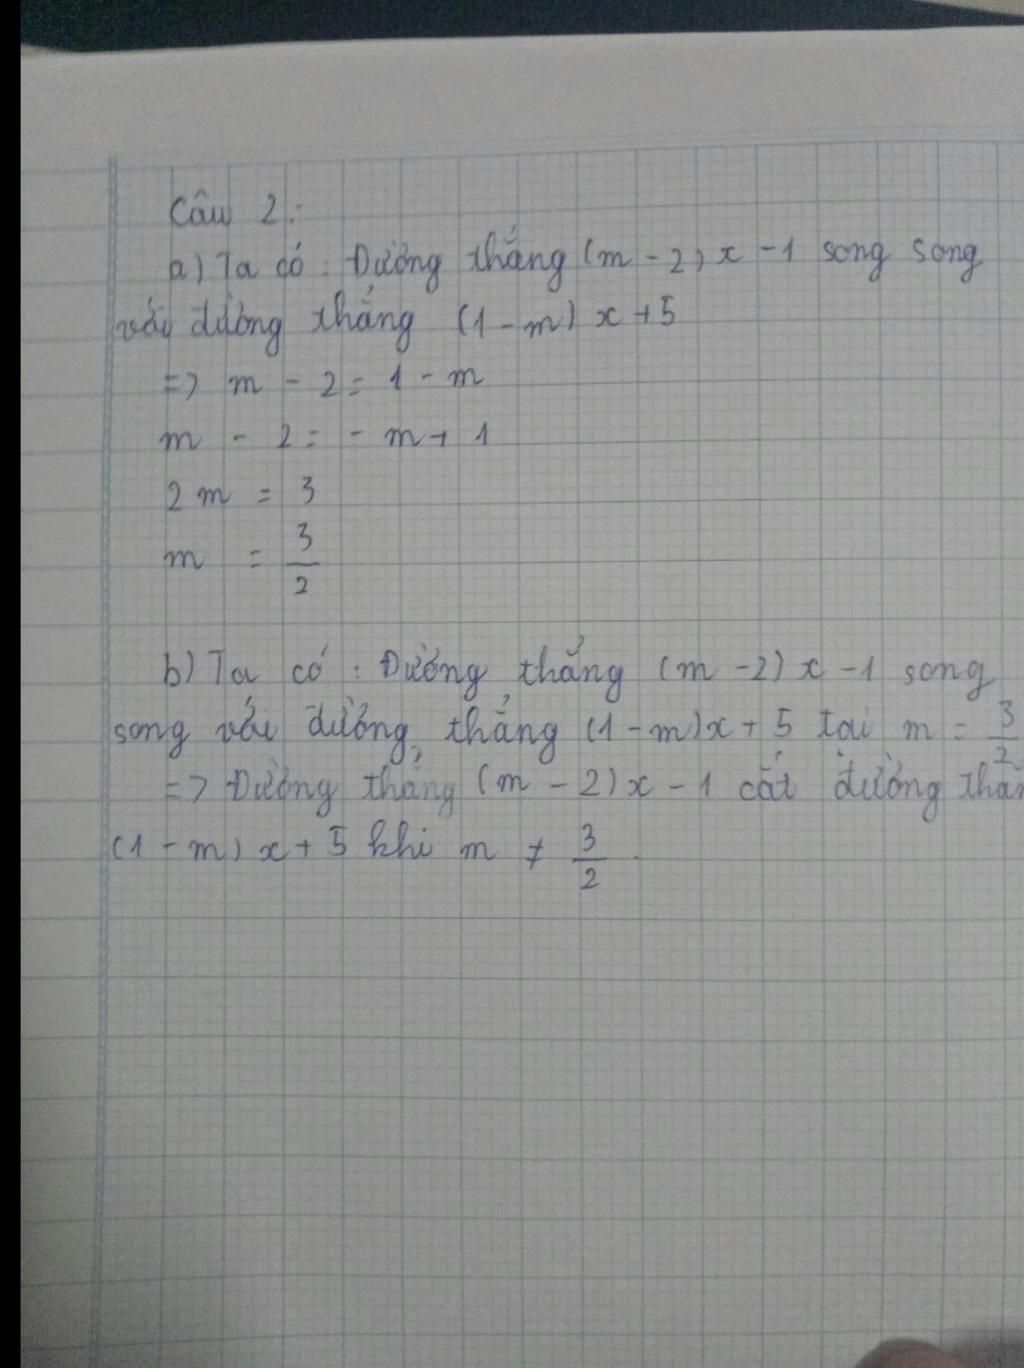 Câu 2:
a) Ta có: Đường thẳng (m - 2) x - 1 song song
với đường thẳng (1 - m) x + 5
=> m - 2 = 1 - m
m - 2 = - m + 1
2 m = 3
m = 3/2
b) Ta có: Đường thẳng (m - 2) x - 1 song
song với đường thẳng (1 - m)x + 5 tại m = 3/2
=> Đường thẳng (m - 2) x - 1 cắt đường thẳn
(1 - m) x + 5 khi m ≠ 3/2.